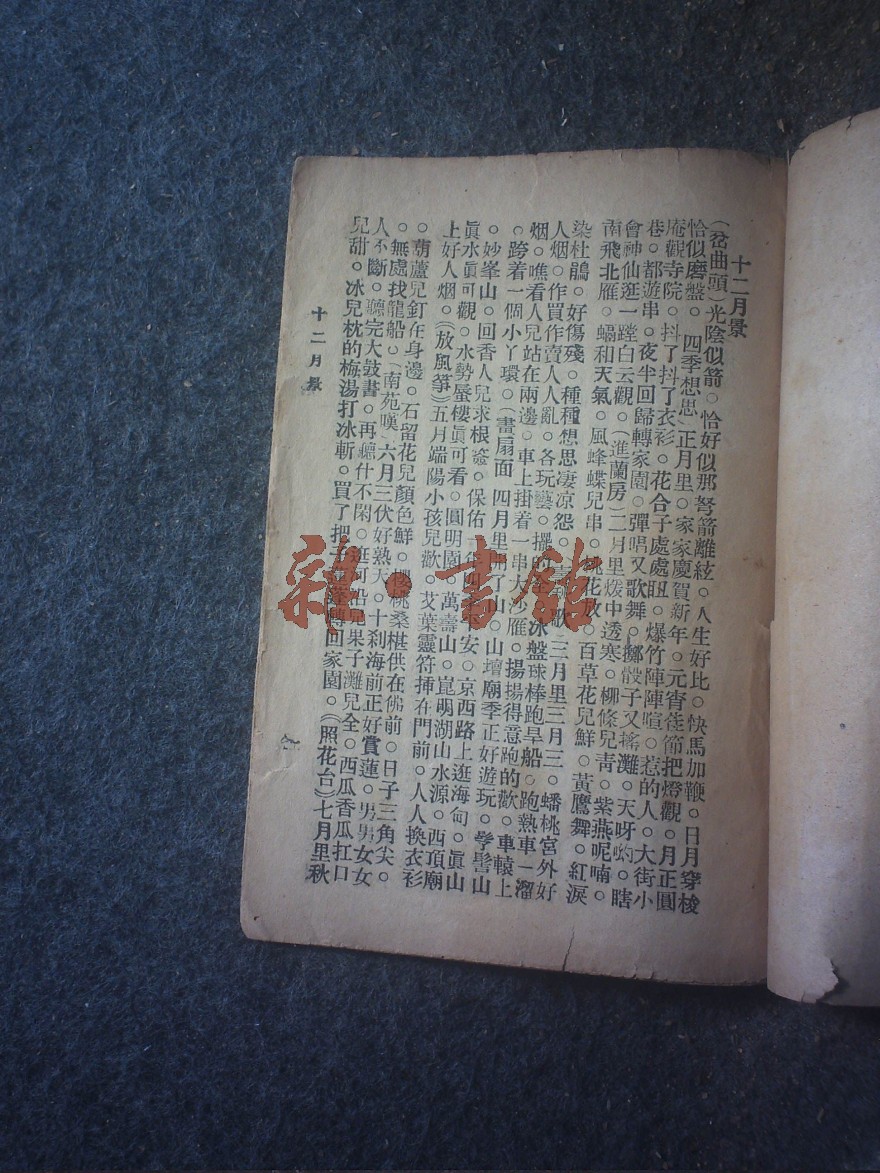 十二月景
(岔曲頭)光陰似箭。恰好似那弩箭離絃。人生好比。快馬加鞭。日月穿梭
恰似磨盤。四季想思)正月里。家家慶賀新年。元宵佳節把燈觀。月正圓
庵觀寺院。抖了抖了衣衫。花合子處處
爆竹陣陣喧。惹的人。大街小
巷。都遊串。夜半回歸轉家園。彈唱又歌舞。擲骰子又搖灘。天呀喲。瞎
會神仙逛一蹚白云觀。(進蘭房)二月里煖中透寒。柳條兒靑。紫燕呢喃。
南飛北雁。
和天氣。風蜂蝶兒串。桃花放。百草花兒鮮。黃鷹舞。紅淚
染杜鵑。好傷殘。種種想思凄凉怨。
歌 三月里三月三。蟠桃宮外好
人烟。作買作賣人人亂。各玩藝。擺
冰盤球棒跑旱船。跑熱車一溜
烟。瞧看人兒站在兩邊。車上掛着一串大沙雁。揚揚得意跑的歡。車轅上
。跨着一個小丫環。(書扇面 四月里開了山。山壇廟季正好游玩。
髻山
。妙峯山。回香人兒求根
保佑一年四季平安。京西路上逛海甸。眞山
眞水眞可觀。水勢蜃樓眞可看。圓明園。萬壽山。崑
湖山水源。西頂廟
上好人烟。(放風箏)五月端陽小孩兒歡。艾葉靈符揷在門前。人人換衣衫
。葫蘆兒釘在身邊。石留花兒顏色鮮。櫻桃桑椹供在佛前。日子三角尖。
。無處找龍船。(南苑嘆)六月三伏好熱天。十刹海前正好賞蓮。男男女女
人不斷。聽完大鼓書。再聽什不閑。逛河沿兒果子灘兒全。西瓜香瓜扛口
兒甜。冰兒枕的梅湯打冰斬。買了把子
蓬轉回家園。(照花台)七月里秋
十二月景
雜·書館